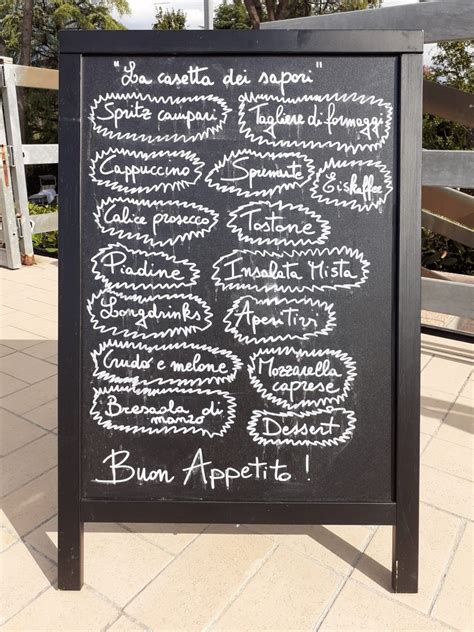 "La casetta dei sapori"
Spritz campari
Tagliere di formaggi
Cappuccino
Spremute
Eiskaffee
Calice prosecco
Tostone
Piadine
Insalata Mista
Longdrinks
Aperitivi
Crudo e melone
Mozzarella
caprese
Bresaola di
manzo
Dessert
Buon Appetito!